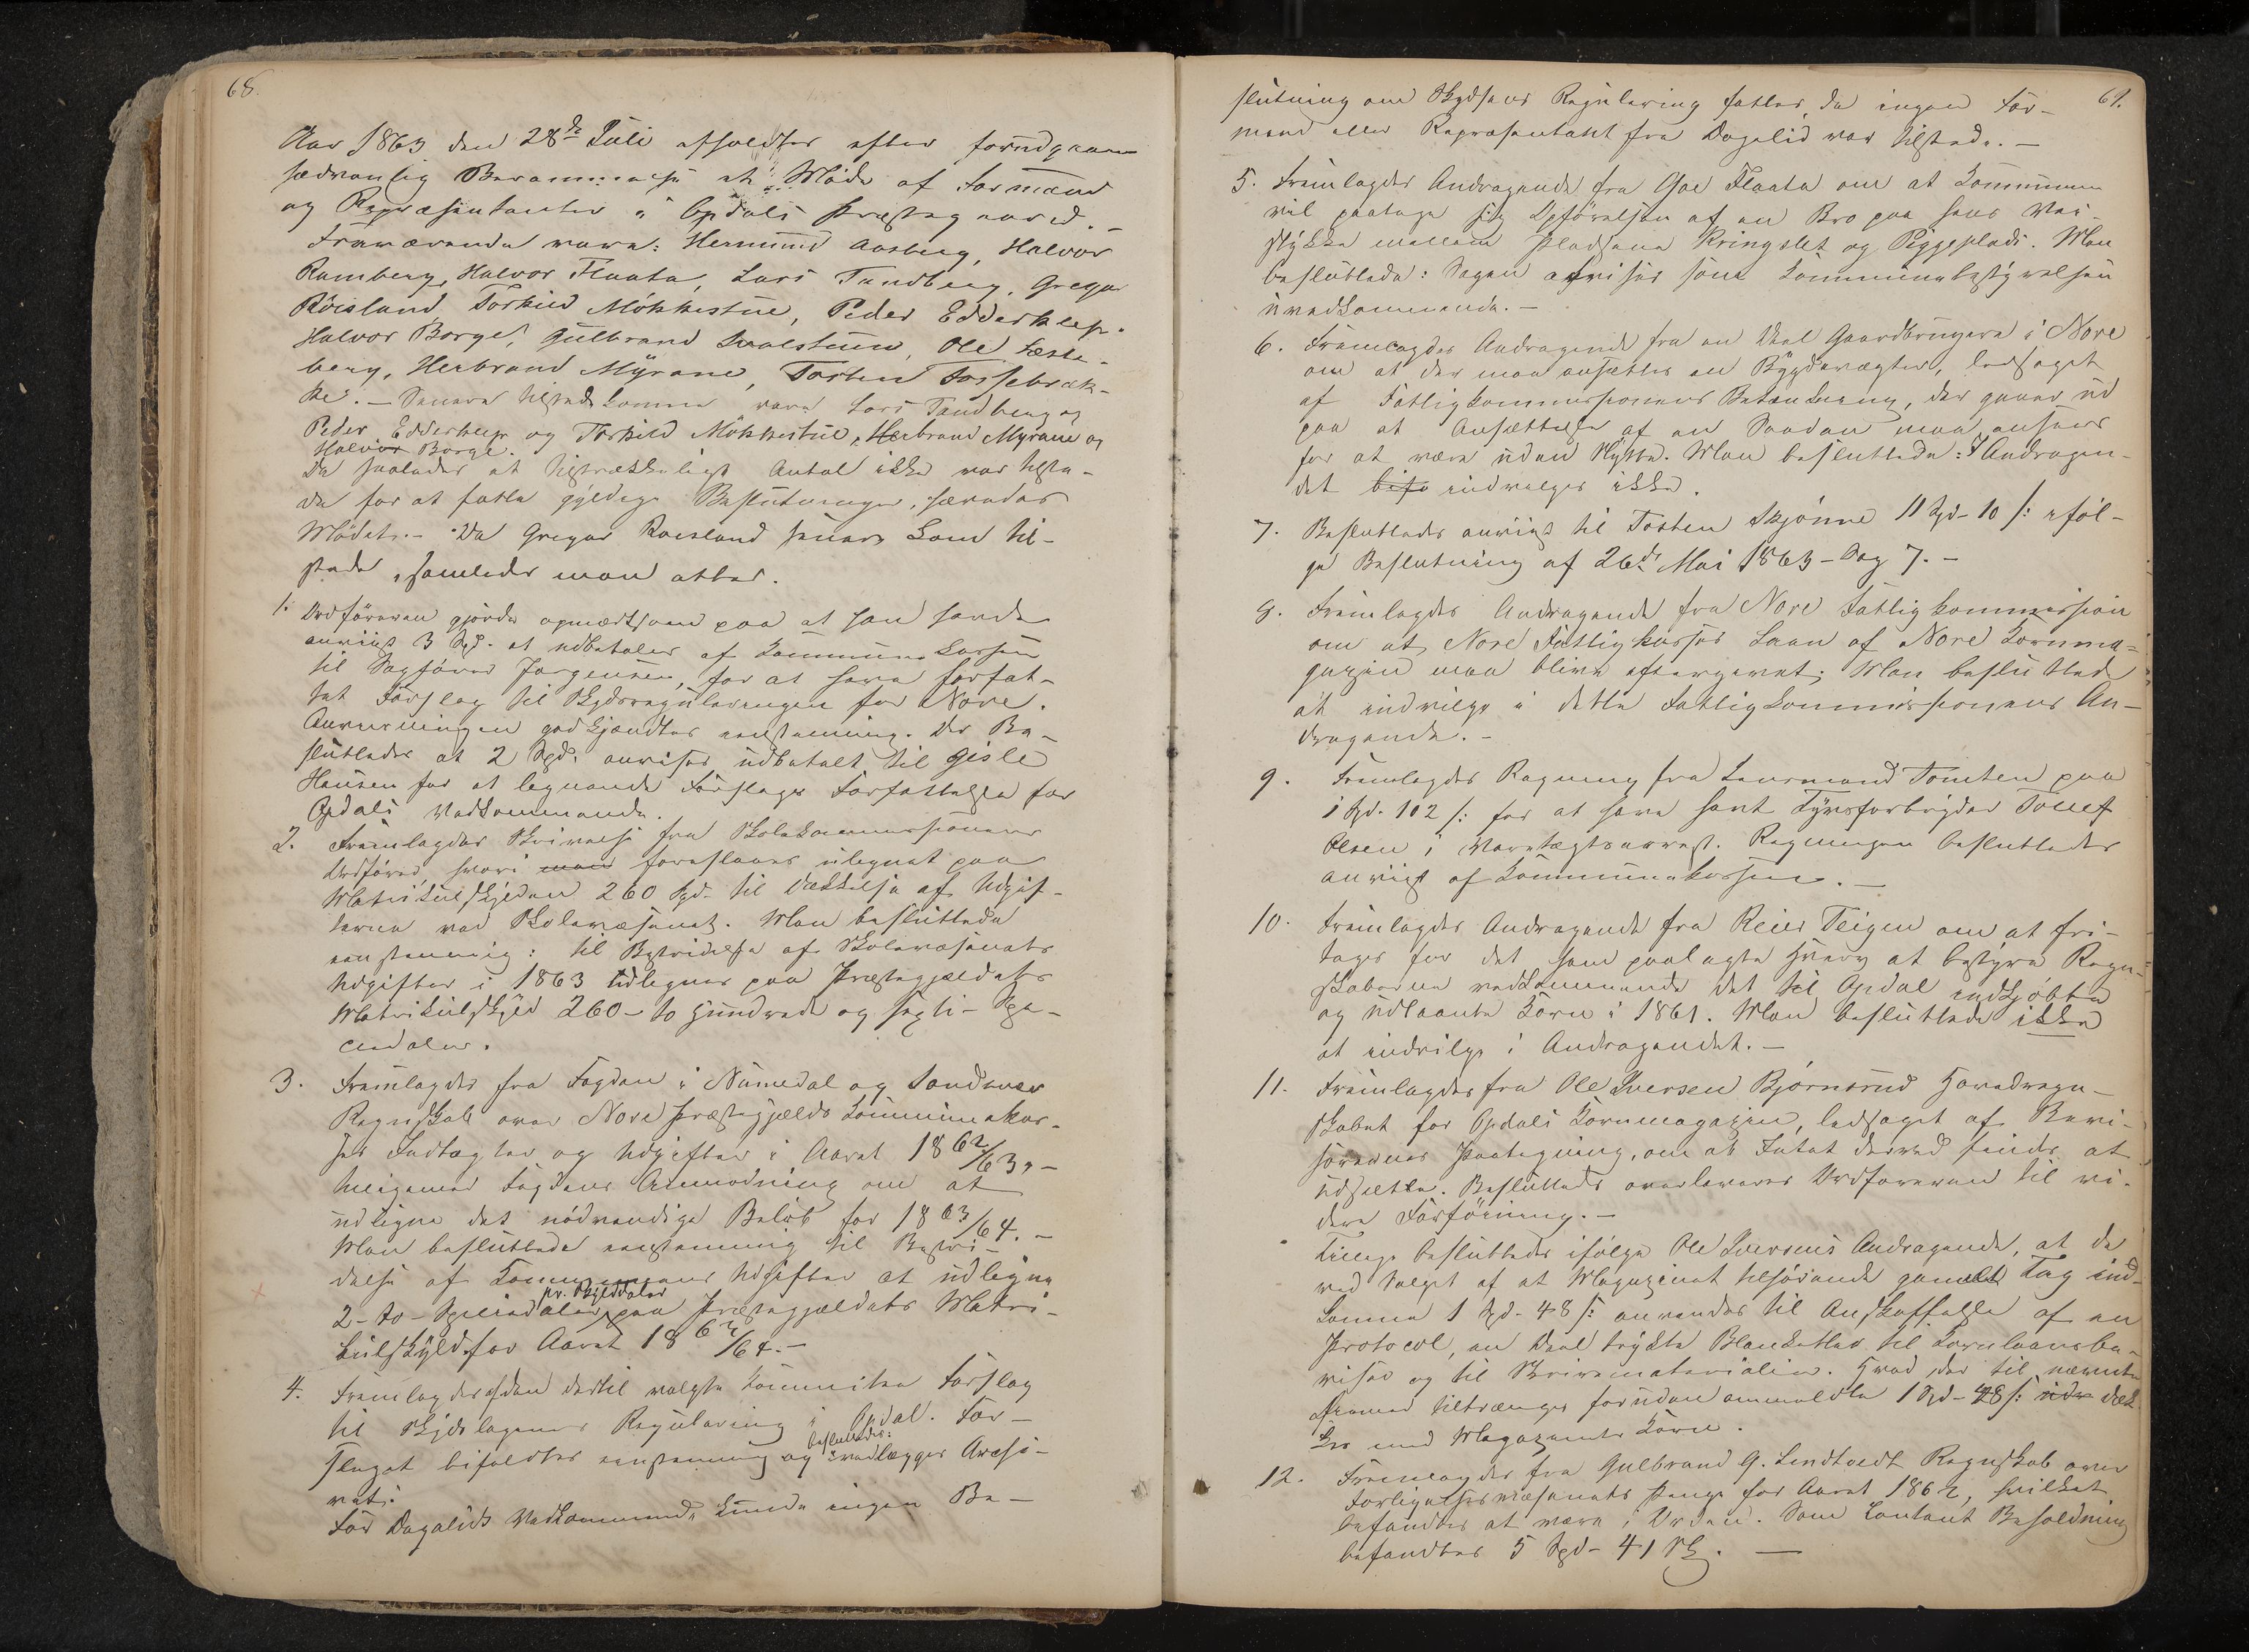 68.
Aar 1863 den 28de Juli afholdtes efter forudgaaen
sædvanlig Berammelse et Møde af Formænd
og Repræsentanter i Opdals Præstegaard. –
Fraværende vare: Hermund Aasberg, Halvor
Ramberg, Halvor Flaata, Lars Tandberg, Gregar
Röisland, Torkild Mökkestue, Peder Edderklep.
Halvor Borge, Gulbrand Svalestuen, Ole Læste-
berg, Herbrand Myrane, Torsten Fossebræk-
ke. – Senere tilstedekomne vare Lars Tandberg og
Peder Edderklep og Torkild Mökkestue, Herbrand Myrane og
Halvor Borge.
Da saaledes et tilstrækkeligt Antal ikke var tilste-
de for at fatte gyldige Beslutninger, hævedes
Mödet. – Da Gregar Roesland senere kom til-
stede, samledes man atter.
1. Ordföreren gjorde opmærksom paa at han havde
anviist 3 Spd. at udbetales af Kommunekassen
til Sagförer Jørgensen, for at have forfat-
tet Forslag til Skydsreguleringen for Nore.
Anvisningen godkjendtes eenstemmig. Der Be-
sluttedes at 2 Spd. anvises udbetalt til Gisle
Hansen for et lignende Forslags Forfattelse for
Opdals Vedkommende.
2. Fremlagdes Skrivelse fra Skolekommissionens
Ordförer, hvori man foreslaaes udlignet paa
Matrikulskylden 260 Spd. til Dækkelse af Udgif-
terne ved Skolevæsenet. Man besluttede
eenstemmig: til Bestridelse af Skolevæsenets
Udgifter i 1863 udlignes paa Præstegjeldets
Matrikulskyld 260 – to Hundrede og sexti – Spe-
ciedaler.
3. Fremlagdes fra Fogden i Numedal og Sandsvær
Regnskab over Nore Præstegjelds Kommunekas-
ses Indtægter og Udgifter i Aaret 1862/63, –
tilligemed Fogdens Anmodning om at
udligne det nödvendige Belöb for 1863/64. –
Man besluttede eenstemmig til Bestri-
delse af Kommunens Udgifter at udligne
pr. Skylddaler
2 – to – Speciedaler paa Præstegjeldets Matri-
kulskyld for Aaret 1863/64. –
4. Fremlagdes af den dertil valgte Kommitee Forslag
til Skydslagenes Regulering i Opdal. For-
besluttedes:
slaget bifaldtes eenstemmig og vedlægges ArcHi-
vet.
For Dagalids Vedkommende kunde ingen Be-
69.
slutning om Skydsens Regulering fattes, da ingen For-
mand eller Repræsentant fra Dagalid var tilstede. –
5. Fremlagdes Andragende fra Goe Flaata om at Kommunen
vil paatage sig Opförelsen af en Bro paa hans Vei-
stykke mellem Pladsene Kringslet og Piggeplads. Man
besluttede: Sagen afvises som Kommunebestyrelsen
uvedkommende. –
6. Fremlagdes Andragende fra en Deel Gaardbrugere i Nore
om at der maa ansættes en Bygdevægter, ledsaget
af Fattigkommissionens Betænkning, der gaaer ud
paa at Ansættelse af en Saadan maa ansees
for at være uden Nytte. Man besluttede: Andragen-
det bifa indvilges ikke.
7. Besluttedes anviist til Tosten Skjönne 11 Spd – 10 s: iföl-
ge Beslutning af 26de Mai 1863 – Sag 7. –
8. Fremlagdes Andragende fra Nore Fattigkommission
om at Nore Fattigkasses Laan af Nore Kornma-
gazin maa blive eftergivet; Man besluttede
at indvilge i dette Fattigkommissionens An-
dragende. –
9. Fremlagdes Regning fra Lensmand Tomten paa
1 Spd. 102 s: for at have havt Tyvsforbryder Tollef
Olsen i Varetægtsarrest. Regningen besluttedes
anviist af Kommunekassen. –
10. Fremlagdes Andragende fra Reier Teigen om at fri-
tages for det ham paalagte Hverv at bestyre Regn-
skaberne vedkommende det til Opdal indkjöbte
og udlaante Korn i 1861. Man besluttede ikke
at indvilge i Andragendet. –
11. Fremlagdes fra Ole Iversen Björnsrud Hovedregn-
skabet for Opdals Kornmagazin, ledsaget af Revi-
sorernes Paategning, om at Intet derved findes at
udsætte. Besluttedes overleveres Ordföreren til vi-
dere Forföining. –
Tillige besluttedes ifölge Ole Iversens Andragende, at de
ved Salget af et Magazinet tilhörende gammelt Tag ind-
komne 1 Spd – 48 s: anvendes til Anskaffelse af en
Protocol, en Deel trykte Blanketter til Kornlaansbe-
viser og til Skrivematerialier. Hvad der til nævnte
Öiemed tiltrænges foruden ommeldte 1 Spd – 48 s: dæk-
kes med Magazinets Korn.
12. Fremlagdes fra Gulbrand G. Lindtvedt Regnskab over
Forligelsesvæsenets Penge for Aaret 1862, hvilket
befandtes at være i Orden. Som contant Beholdning
befandtes 5 Spd – 41 Sk. –